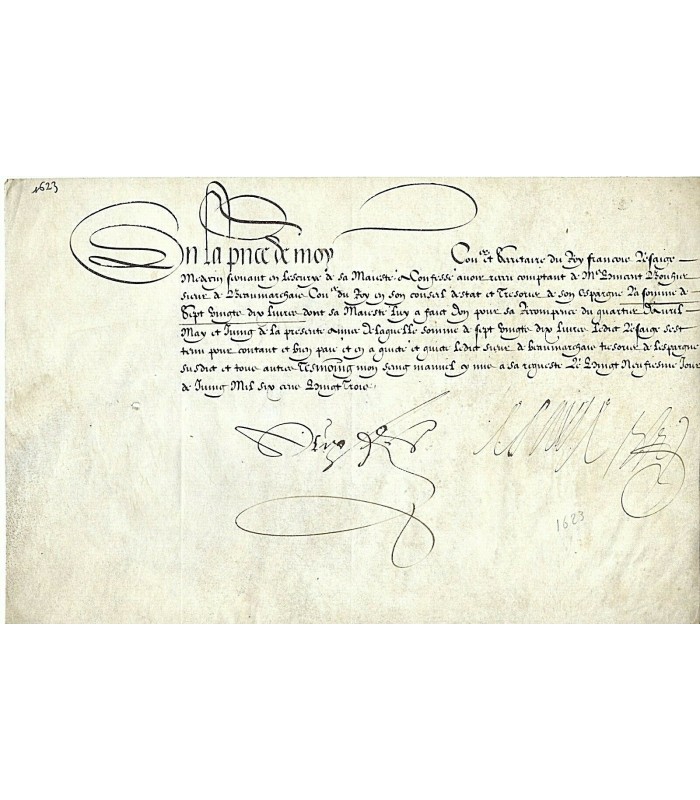 1623
En la pnce de moy Con.er et Secretaire du Roy francois Lesaige
Medecin servant en lescurye de sa Maiesté a Confessé avoir receu comptant de Me Vincent Bouhier
sieur de Beaumarchais Con.er du Roy en son conseil destat et Tresorier de son espargne La somme de
Sept vingtz dix livres dont sa Maiesté luy a faict don pour sa recompence du quartier davril
May et Juing de la presente annee De laquelle somme de sept vingtz dix livres Ledict Lesaige sest
tenu pour contant et bien paié et en a quicté et quicte ledict sieur de beaumarchais tresorier de lespargne
susdict et tous autres Tesmoing mon seing manuel cy mis a sa requeste Le Vingt Neufiesme Jour
de Juing Mil six cens Vingt Trois
1623